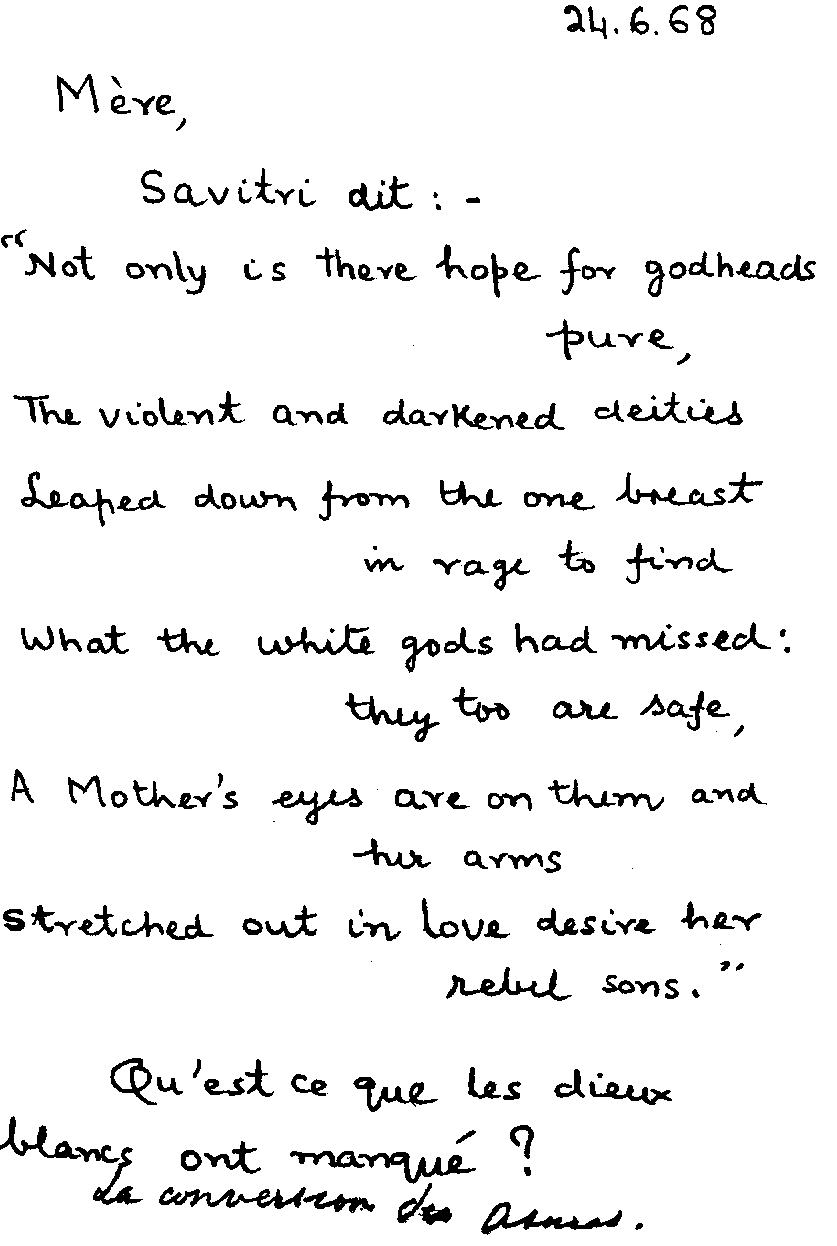 24.6.68
Mère,
Savitri dit : -
"Not only is there hope for godheads
pure,
The violent and darkened deities
Leaped down from the one breast
in rage to find
What the white gods had missed:
they too are safe,
A Mother's eyes are on them and
her arms
stretched out in love desire her
rebel sons."
Qu'est ce que les dieux
blancs ont manqué ?
La conversion des Asuras.